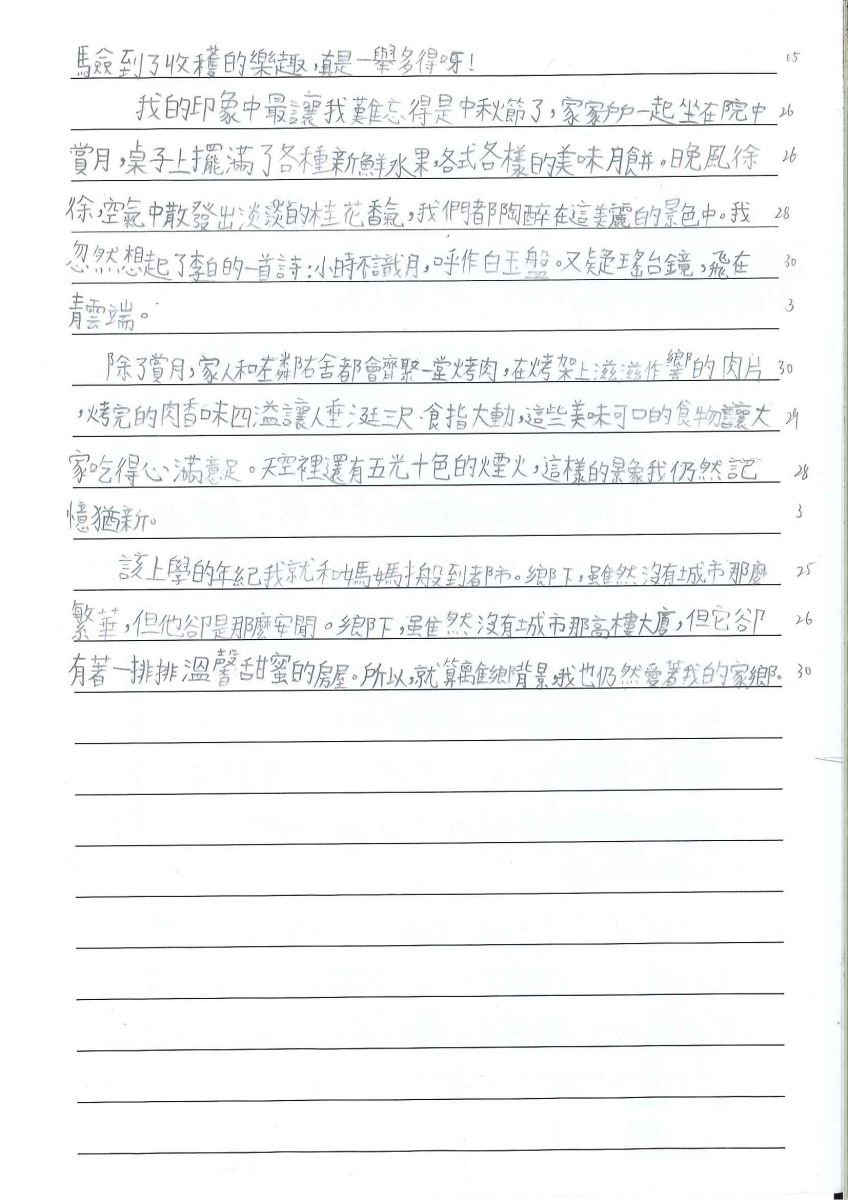 驗到了收穫的樂趣，真是一舉多得呀！ 15
我的印象中最讓我難忘得是中秋節了，家家戶戶一起坐在院中 26
賞月，桌子上擺滿了各種新鮮水果，各式各樣的美味月餅。晚風徐 26
徐，空氣中散發出淡淡的桂花香氣，我們都陶醉在這美麗的景色中。我 28
忽然想起了李白的一首詩：小時不識月，呼作白玉盤。又疑瑤台鏡，飛在 30
青雲端。 3
除了賞月，家人和左鄰右舍都會齊聚一堂烤肉，在烤架上滋滋作響的肉片 30
，烤完的肉香味四溢讓人垂涎三尺、食指大動，這些美味可口的食物讓大 29
家吃得心滿意足。天空裡還有五光十色的煙火，這樣的景象我仍然記 28
憶猶新。 3
該上學的年紀我就和媽媽搬到都市。鄉下，雖然沒有城市那麼 25
繁華，但他卻是那麼安閒。鄉下，雖然沒有城市那高樓大廈，但它卻 26
有著一排排溫馨甜蜜的房屋。所以，就算離鄉背景，我也仍然愛著我的家鄉。 30